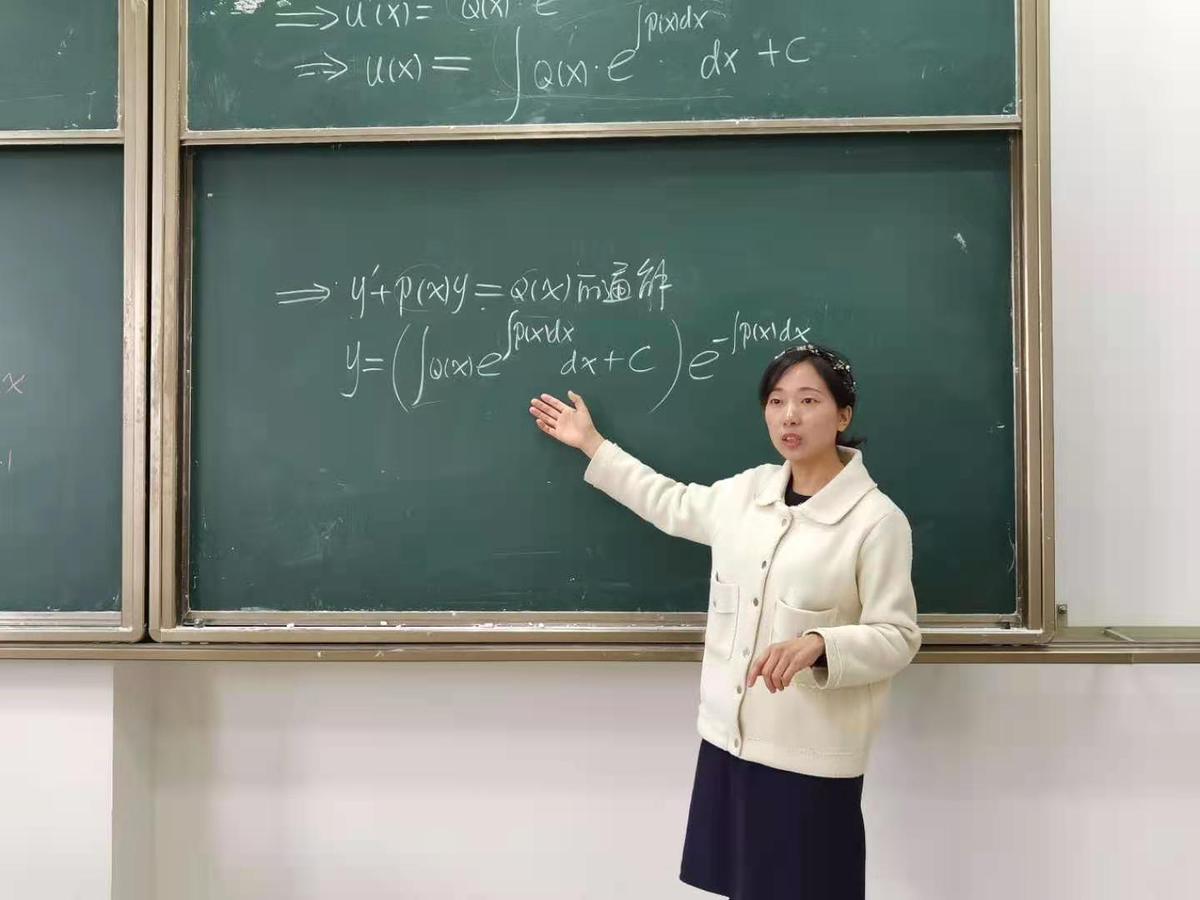 ⇒ u'(x) = Q(x)·e
⇒ u(x) = ∫Q(x)·e^{∫p(x)dx} dx + C
⇒ y' + p(x)y = Q(x)的通解
y = (∫Q(x)e^{∫p(x)dx} dx + C)e^{-∫p(x)dx}
x